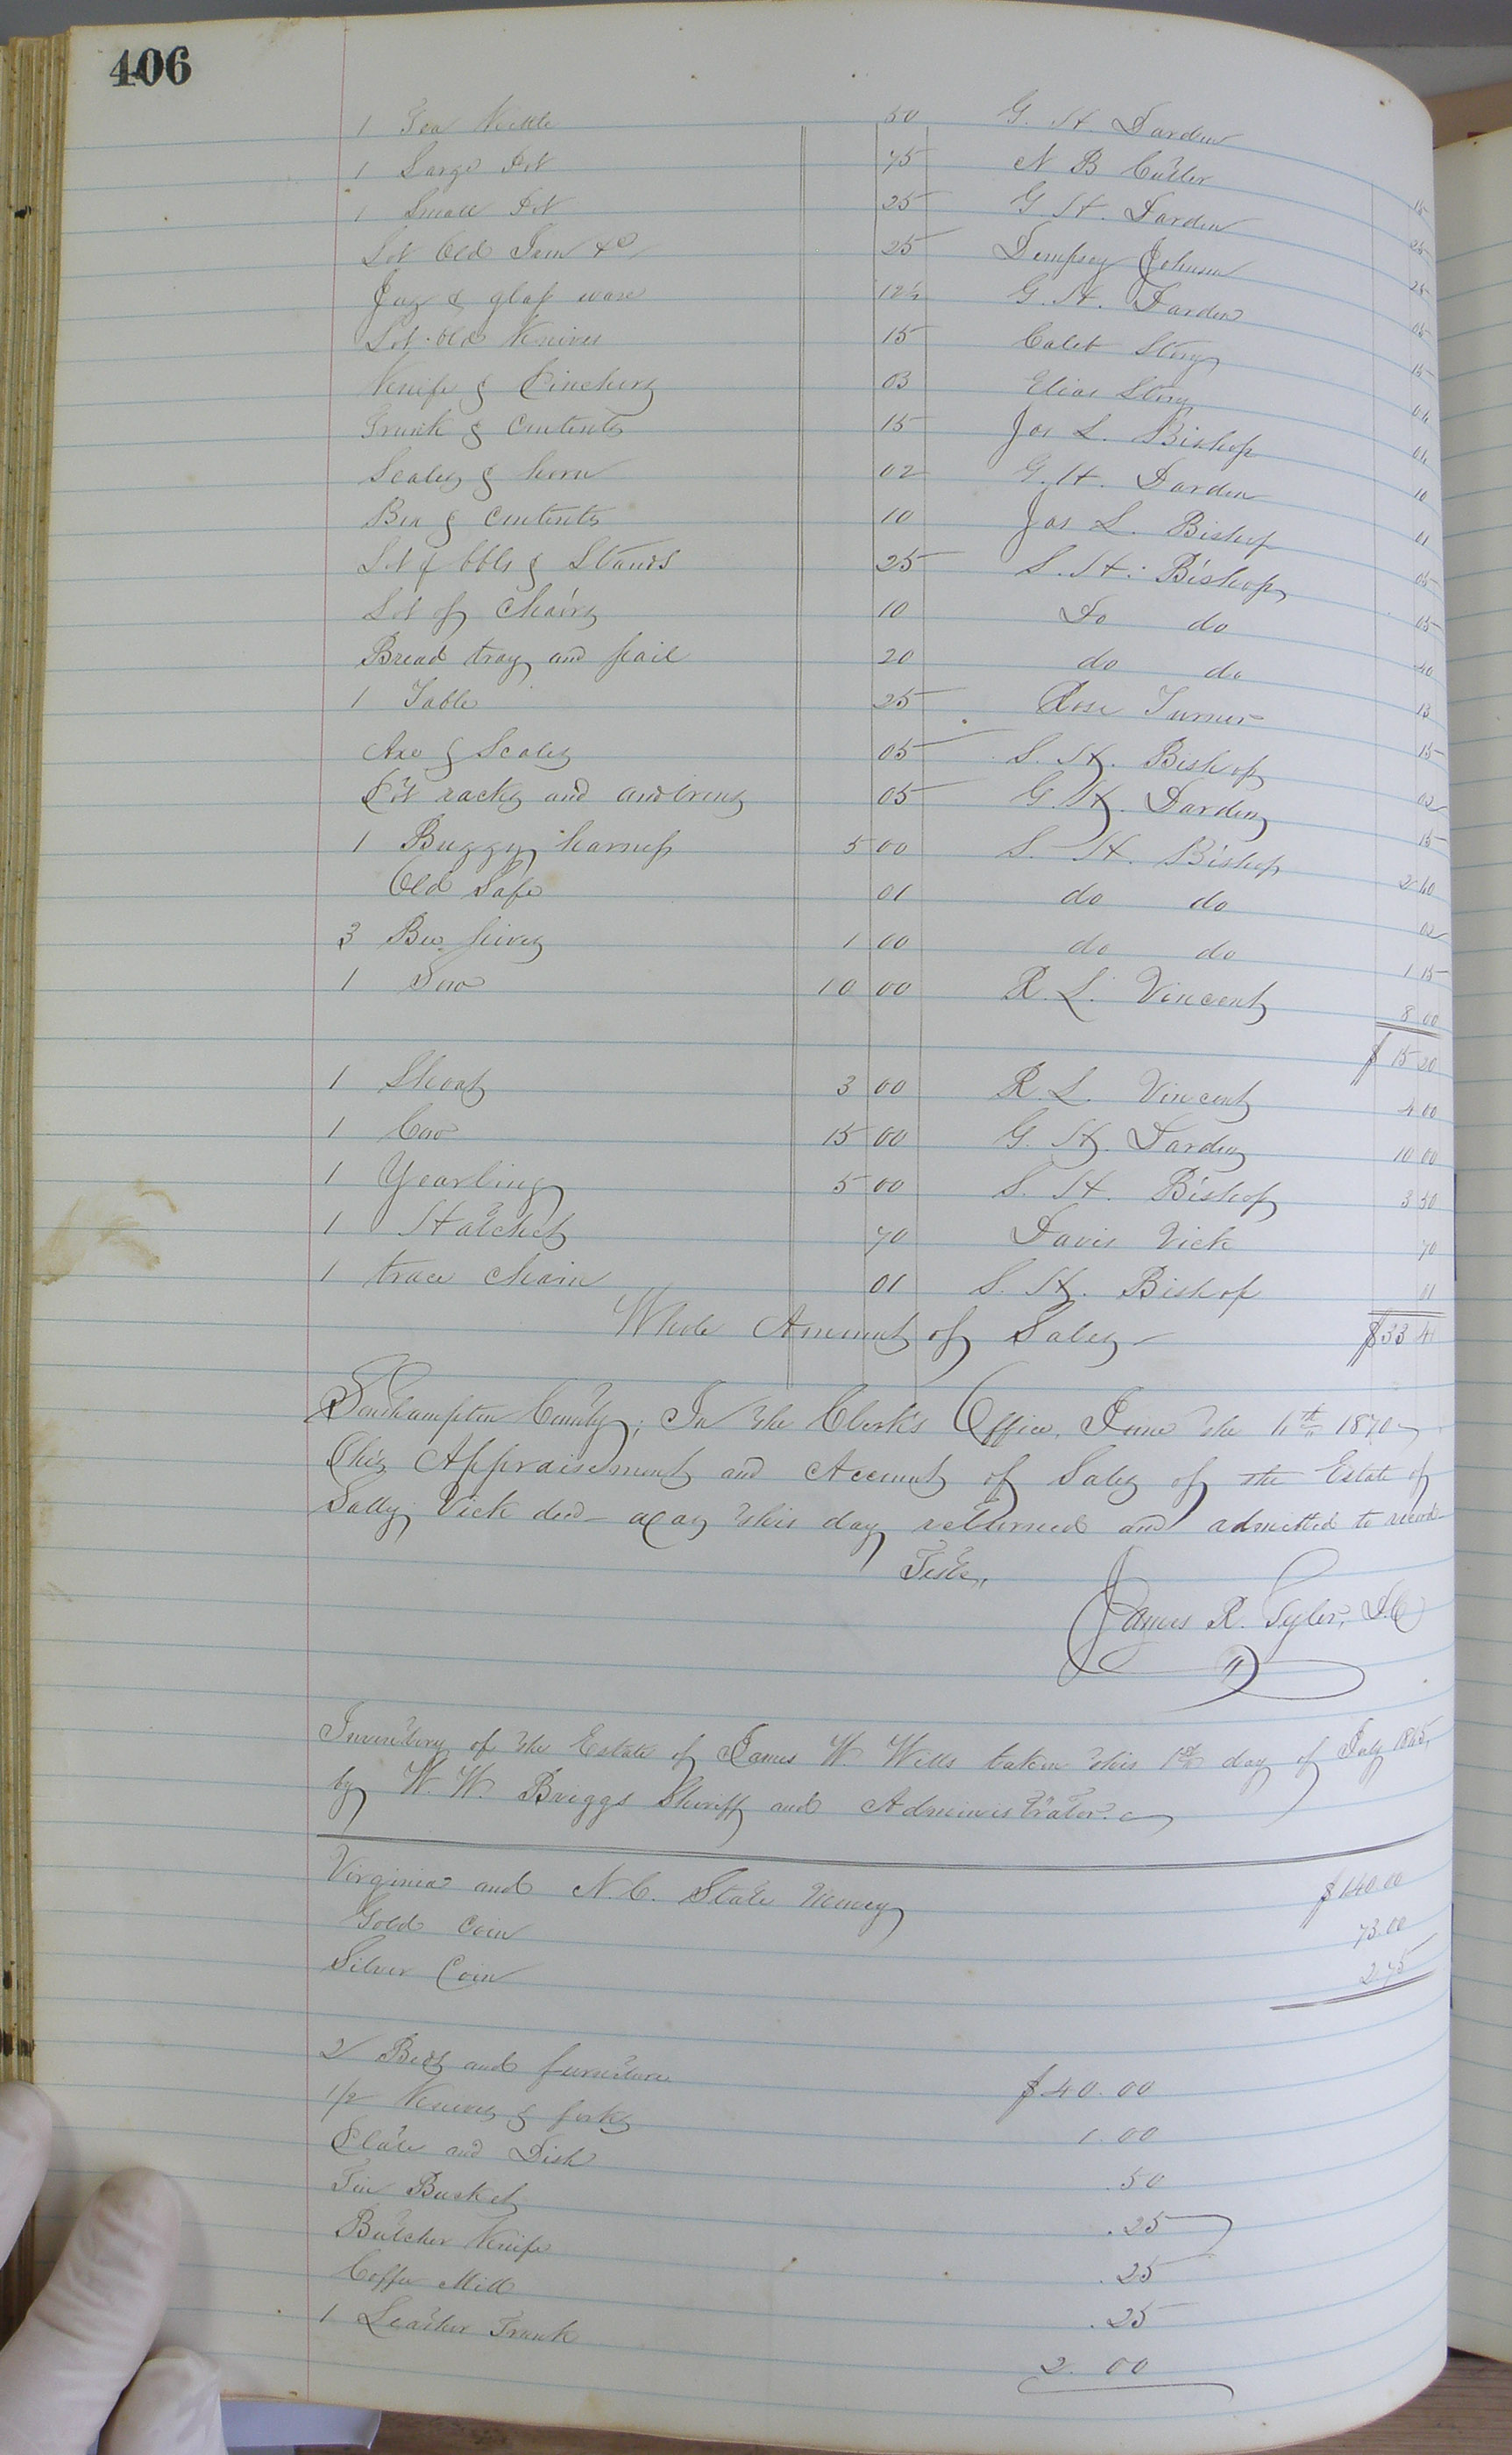 406
1 Tea Kettle 50 G. H. Darden 15
1 Large Pot 75 N B Cutler 25
1 Small Pot 25 G. H. Darden 25
Lot Old Iron &c 25 Dempsey Johnson 05
Jug & glass ware 12½ G. H. Darden 15
Lot old Knives 15 Caleb Story
Knife & Pinchers 03 Elias Story
Trunk & Contents 15 Jos L. Bishop 10
Scales & horn 02 G. H. Darden 01
Box & Contents 10 Jos L. Bishop 05
Lot of bbls & Stands 25 S. H. Bishop 05
Lot of Chairs 10 Do do 40
Bread tray and pail 20 do do 13
1 Table 25 Rose Turner 15
Axe & Scales 05 S. H. Bishop 02
Pot racks and andirons 05 G. H. Darden 15
1 Buggy harness 5 00 S. H. Bishop 2 40
Old Safe 01 do do 02
3 Bee hives 1 00 do do 1 15
1 Sow 10 00 R. L. Vincent 8 00
$ 15 20
1 Shoat 3 00 R. L. Vincent 4 00
1 Cow 15 00 G. H. Darden 10 00
1 Yearling 5 00 S. H. Bishop 3 50
1 Hatchet 70 Davis Vick 70
1 trace chain 01 S. H. Bishop 01
Whole Amount of Sales $33 41
Southampton County; In the Clerk's Office, June the 11th 1870
This Appraisement and Account of Sales of the Estate of
Sally Vick decd was this day returned and admitted to record
Teste,
James R. Tyler, D.C
Inventory of the Estate of James W. Wills taken this 1st day of July 1865,
by W. W. Briggs Sheriff and Administrator.
Virginia and N. C. State Money $140.00
Gold Coin 73.00
Silver Coin 2.75
2 Beds and furniture $40.00
1/2 Knives & forks 1.00
Plate and Dish .50
Tin Bucket .25
Butcher Knife .25
Coffee Mill .25
1 Leather Trunk 2.00